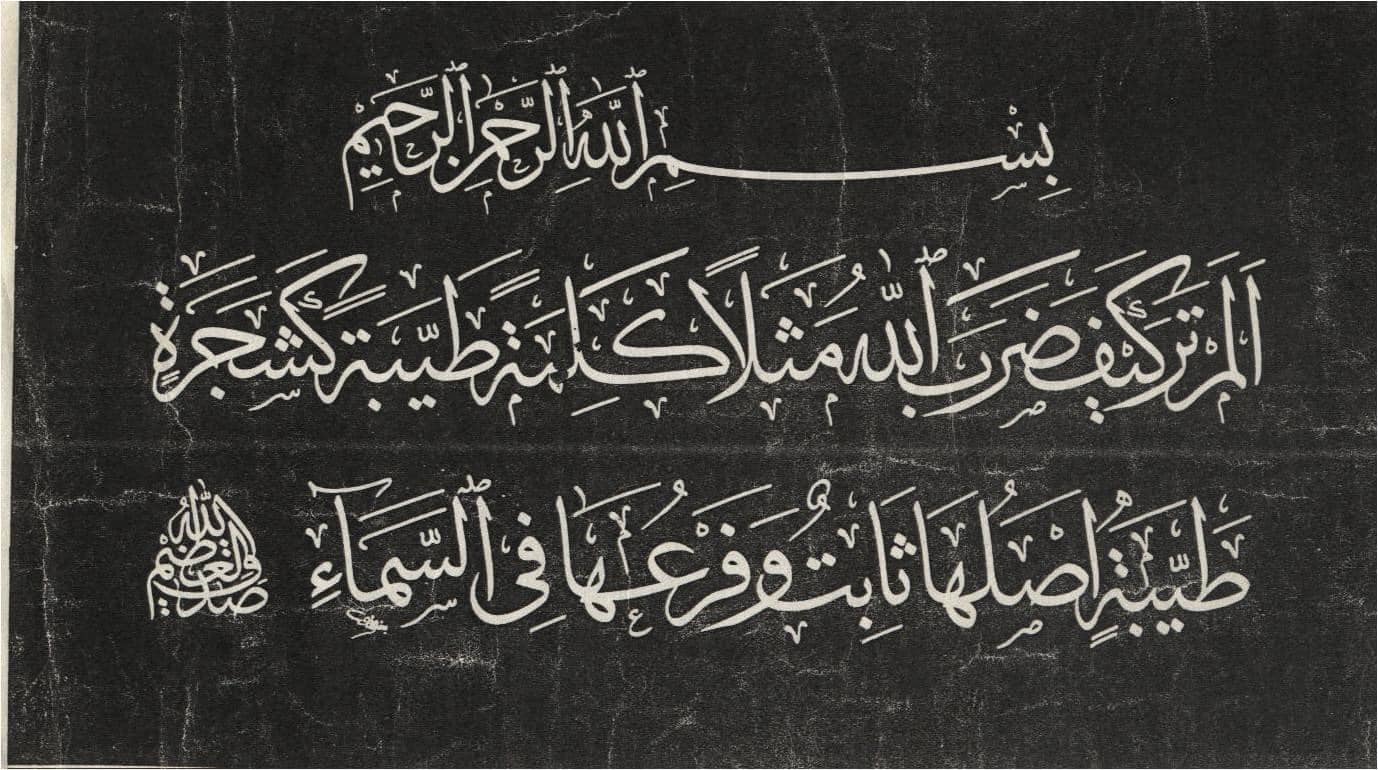 بِسْمِ ٱللَّهِ ٱلرَّحْمٰنِ ٱلرَّحِيمِ
اَلَمْ تَرَ كَيْفَ ضَرَبَ ٱللَّهُ مَثَلًا كَلِمَةً طَيِّبَةً كَشَجَرَةٍ
طَيِّبَةٍ اَصْلُهَا ثَابِتٌ وَفَرْعُهَا فِى ٱلسَّمَآءِ
صدق الله العظيم